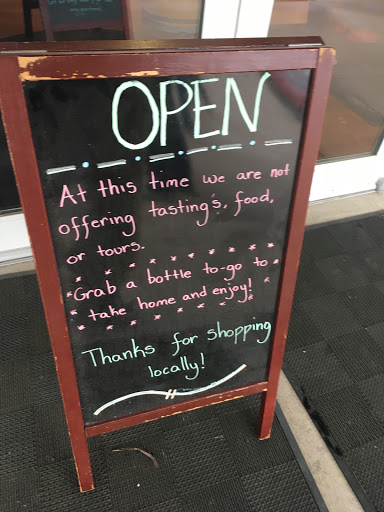 OPEN
At this time we are not
offering tastings, food,
or tours.
Grab a bottle to-go to
take home and enjoy!
Thanks for shopping
locally!